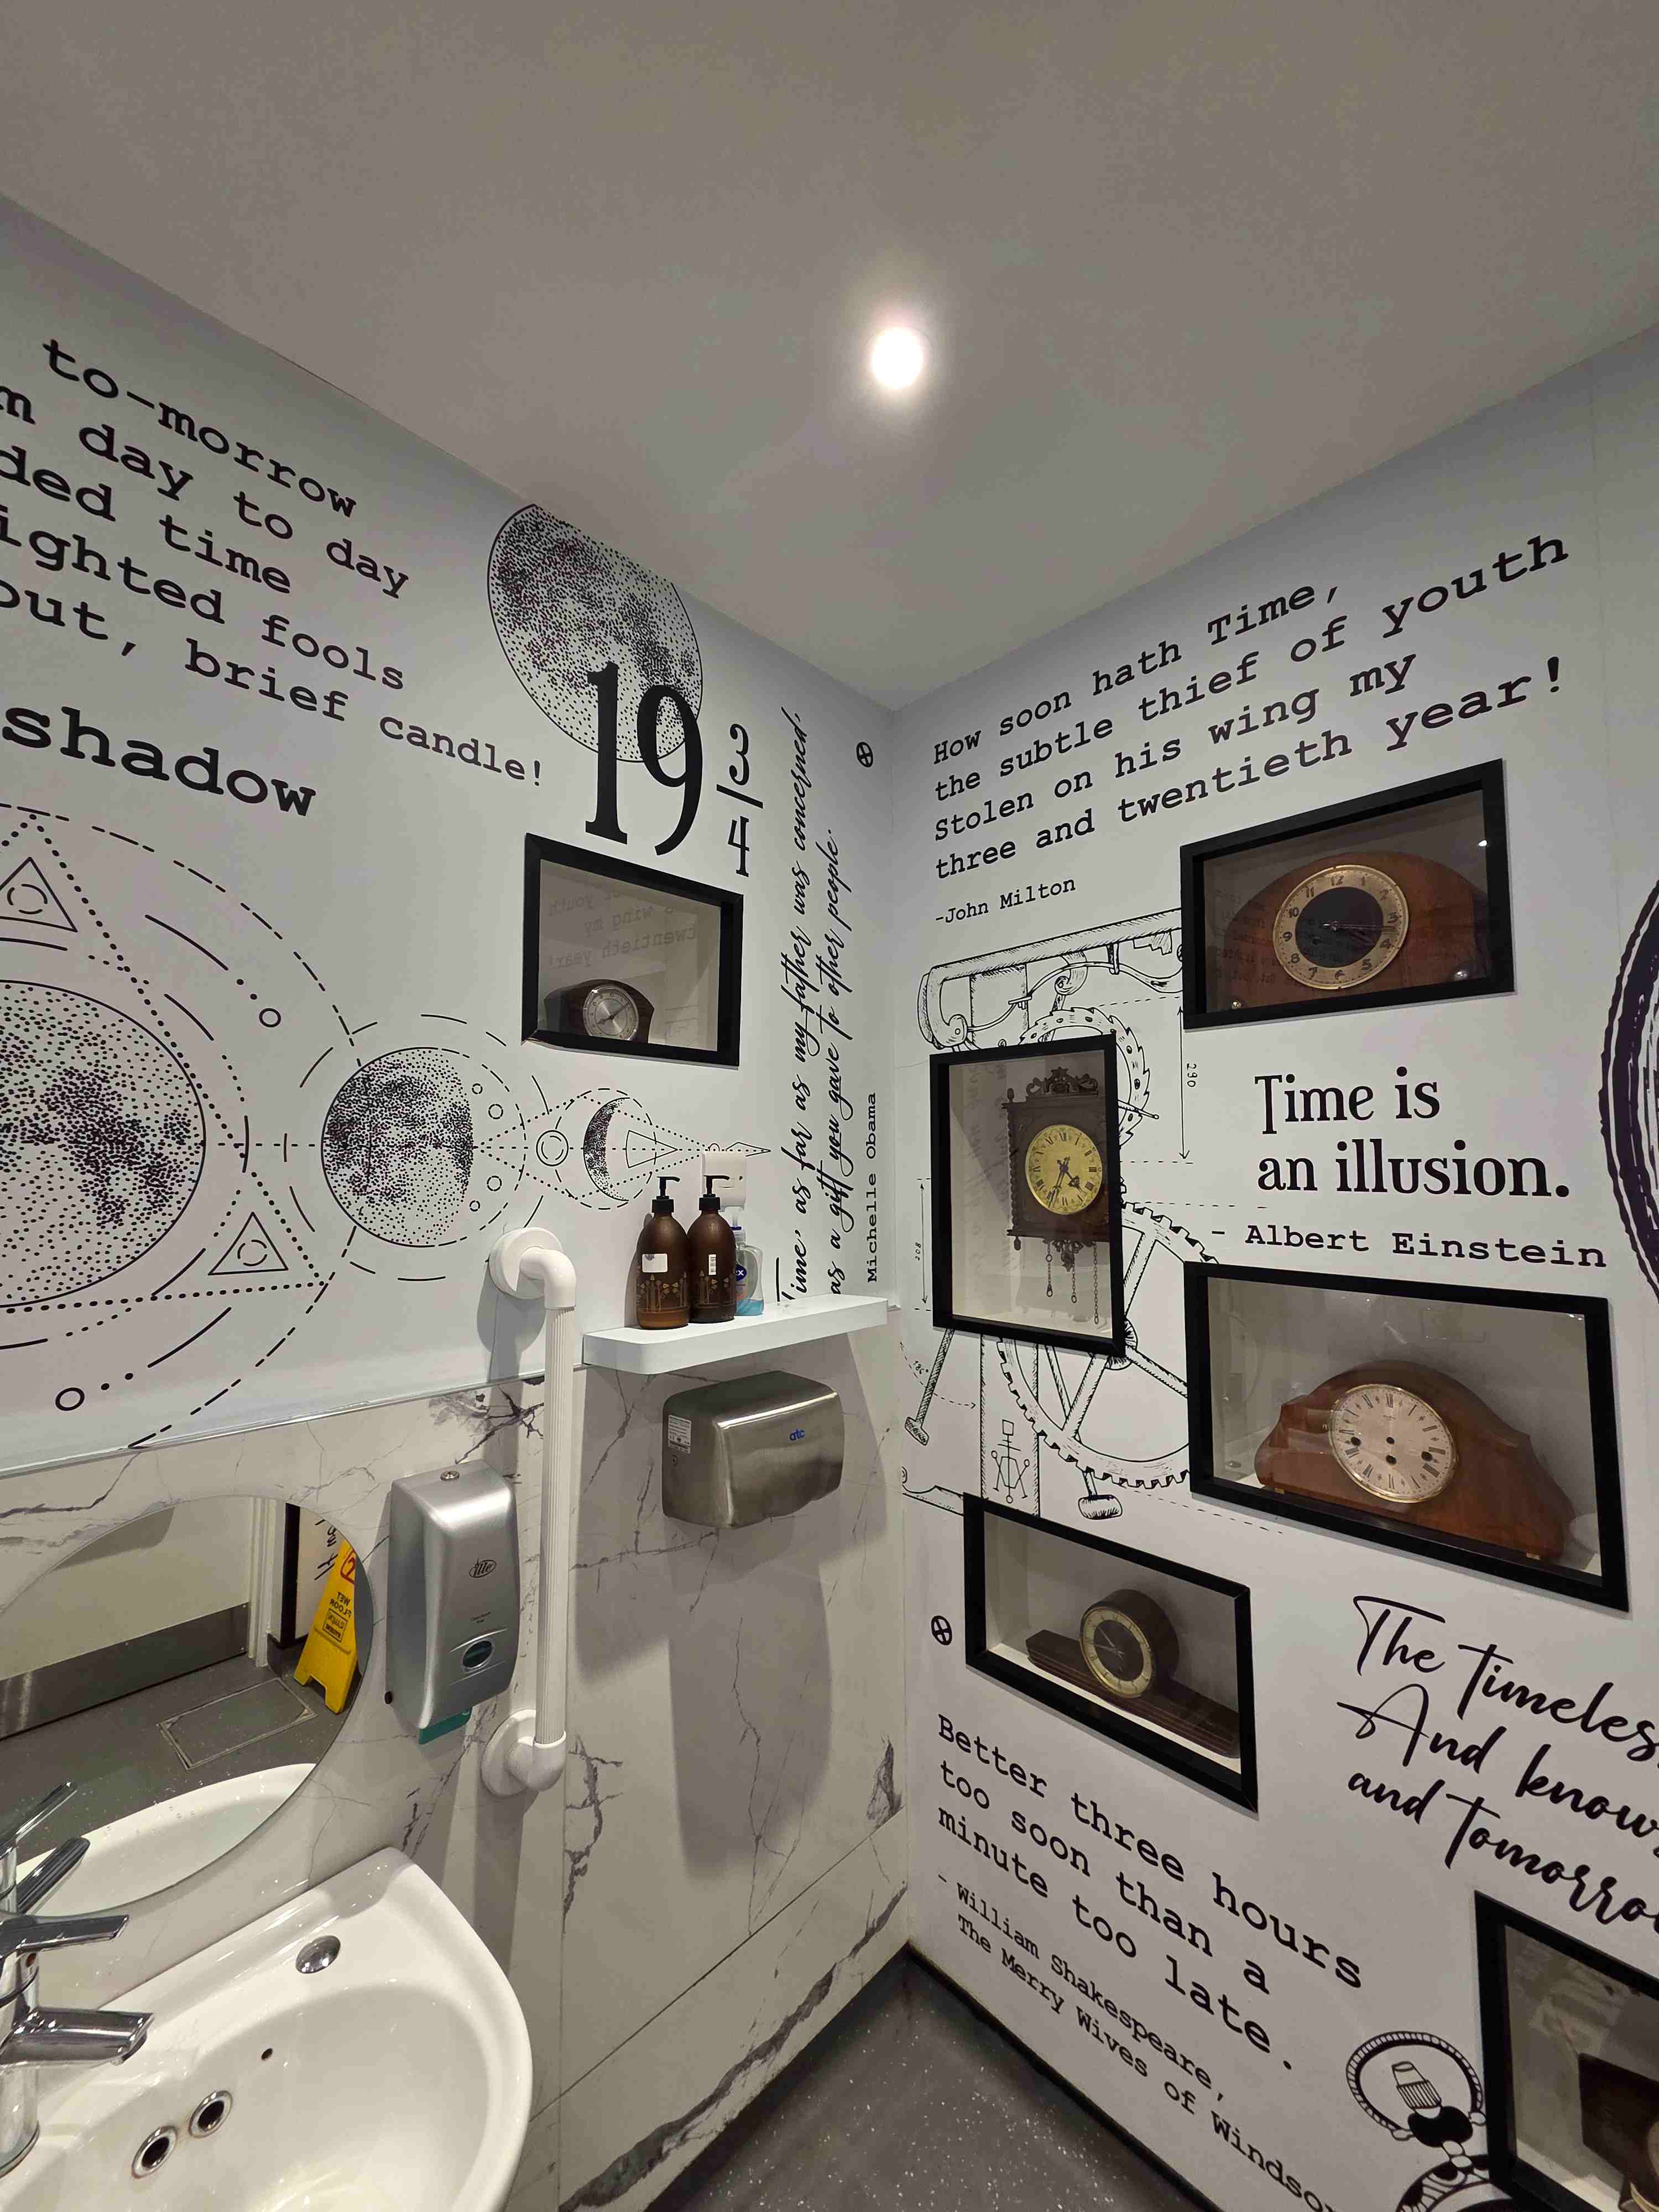 to-morrow
day to day
time
fools
out, brief candle!
shadow
19 3/4
Time, as far as my father was concerned,
as a gift you gave to other people.
Michelle Obama
How soon hath Time,
the subtle thief of youth
Stolen on his wing my
three and twentieth year!
-John Milton
12
11
10
9
8
7
6
5
4
3
290
208
Time is
an illusion.
- Albert Einstein
atc
ille
WET
FLOOR
The Timeless
And knows
and Tomorrow
Better three hours
too soon than a
minute too late.
- William Shakespeare,
The Merry Wives of Windsor